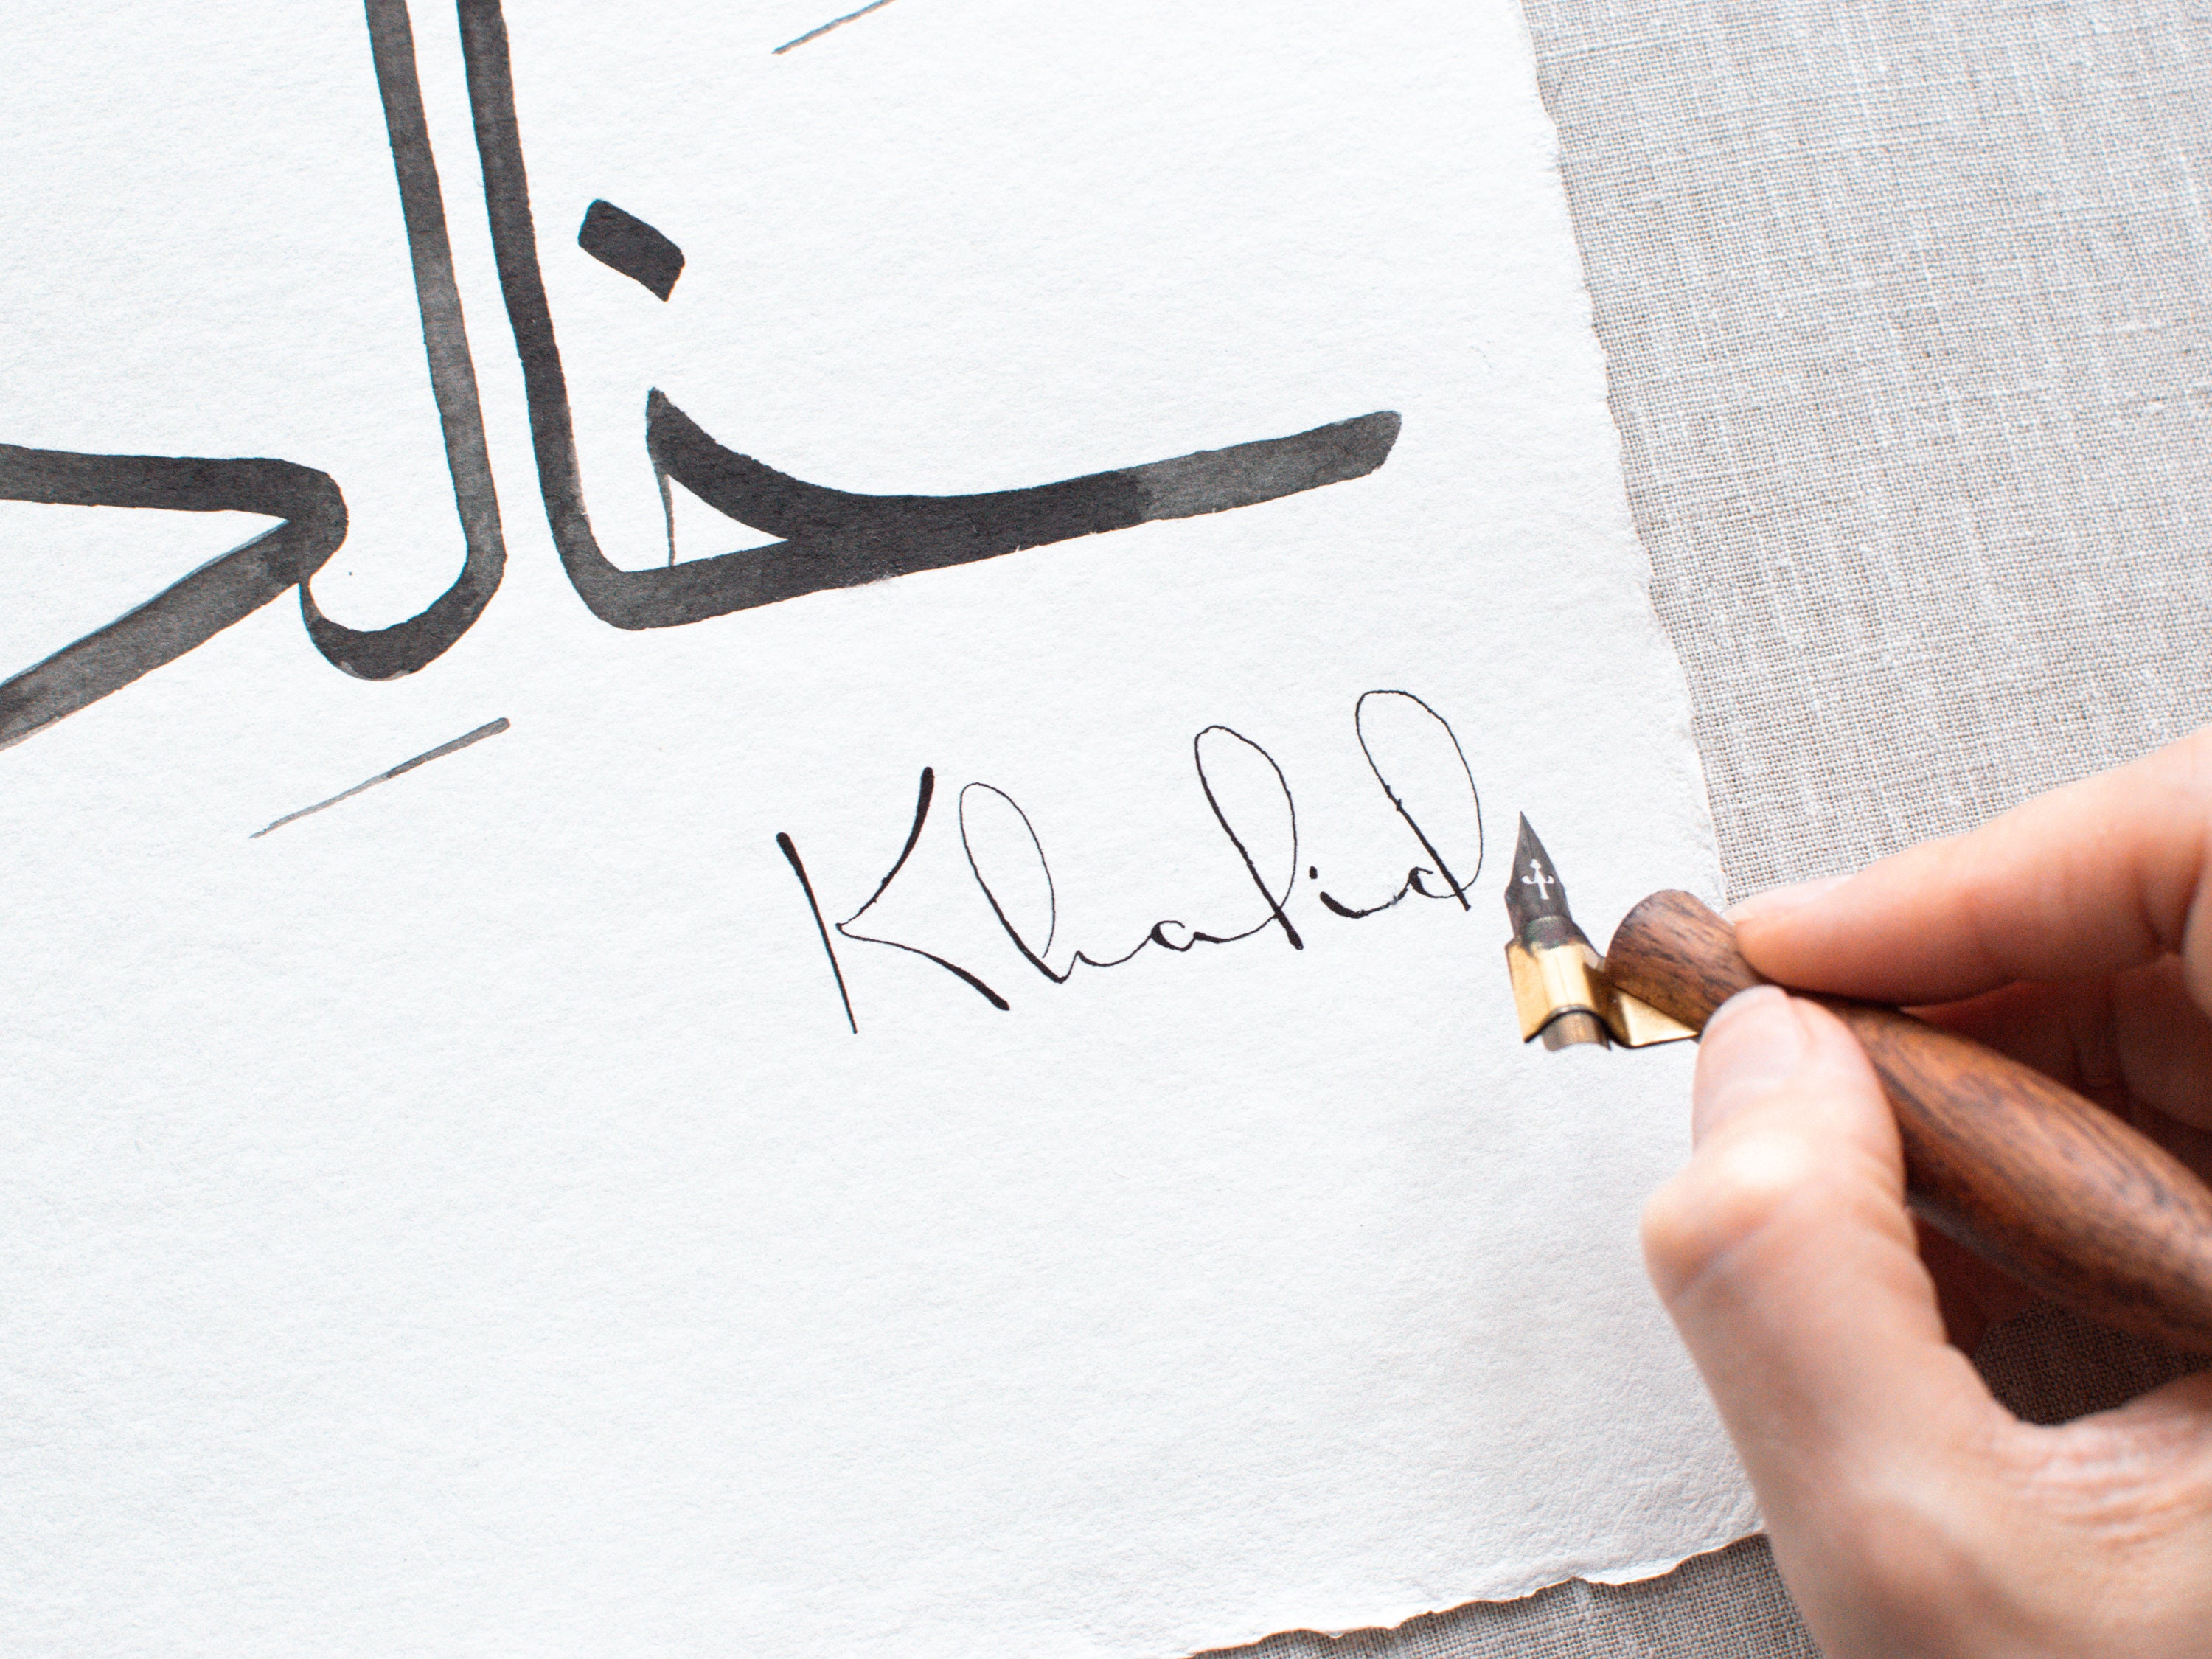 خالد
Khalid